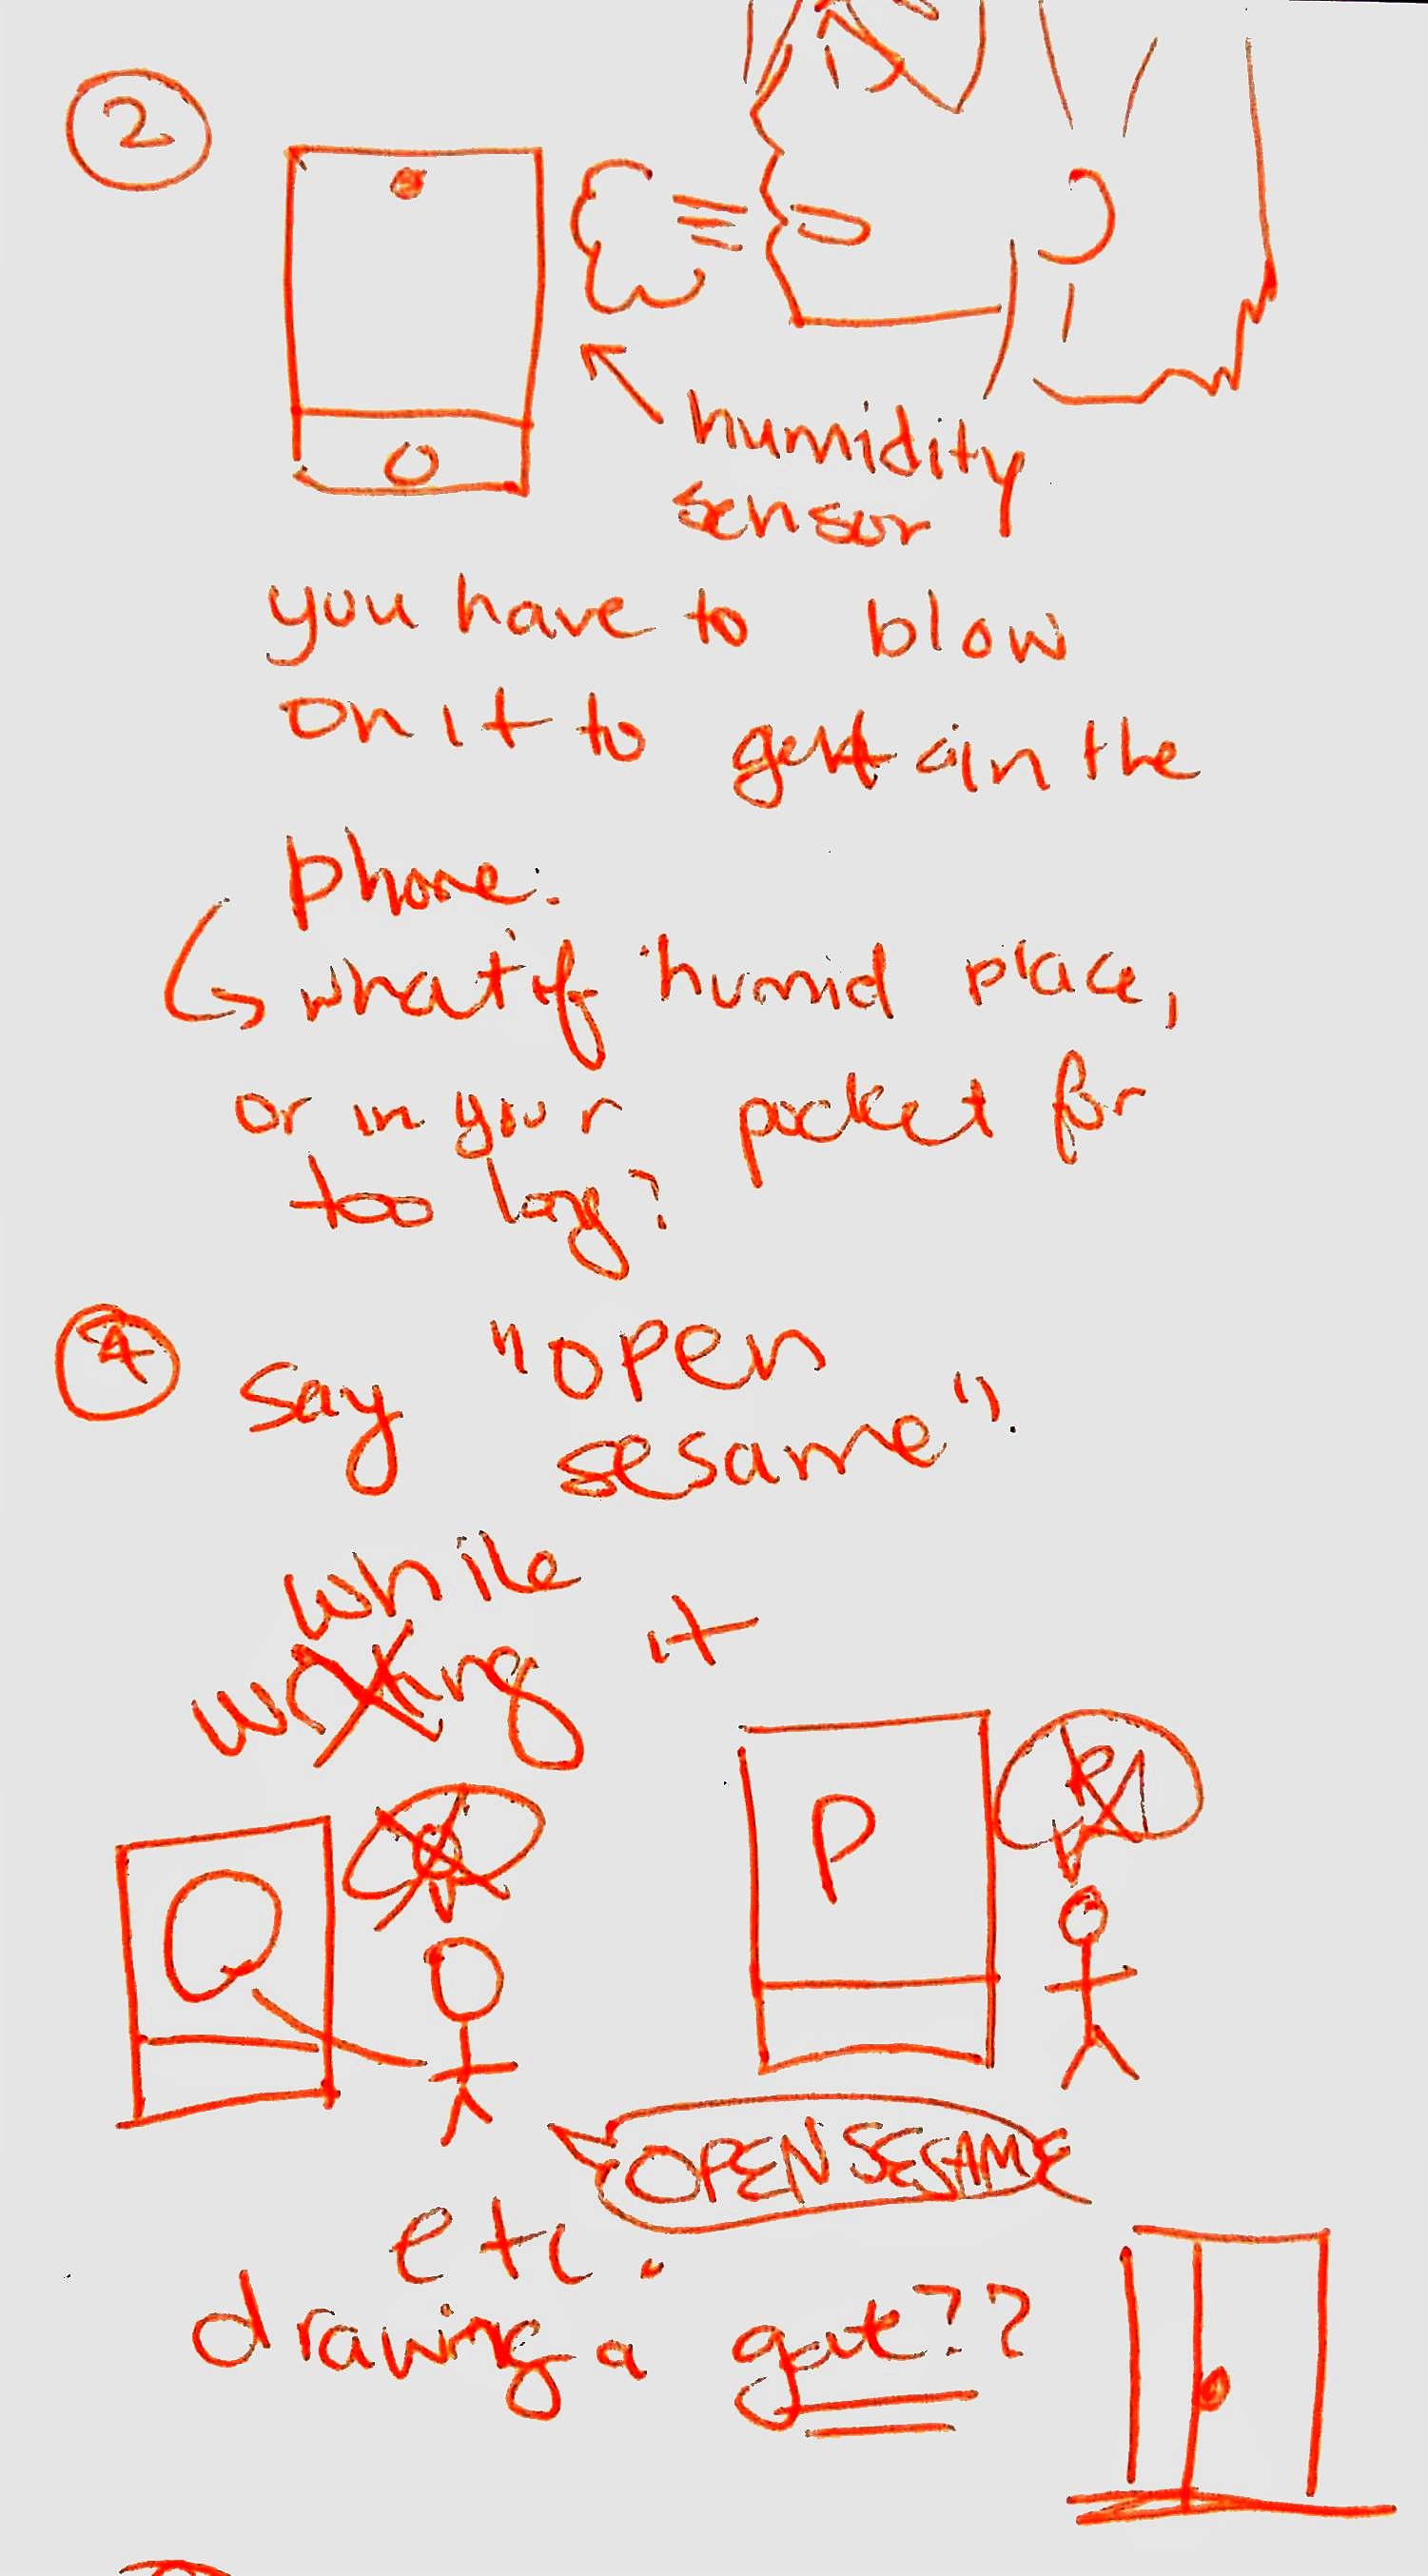 2
humidity
sensor
you have to blow
on it to get in the
phone.
what if humid place,
or in your pocket for
too long?
4
say "open
sesame".
while
writing it
P
OPEN SESAME
etc.
drawing a gate??